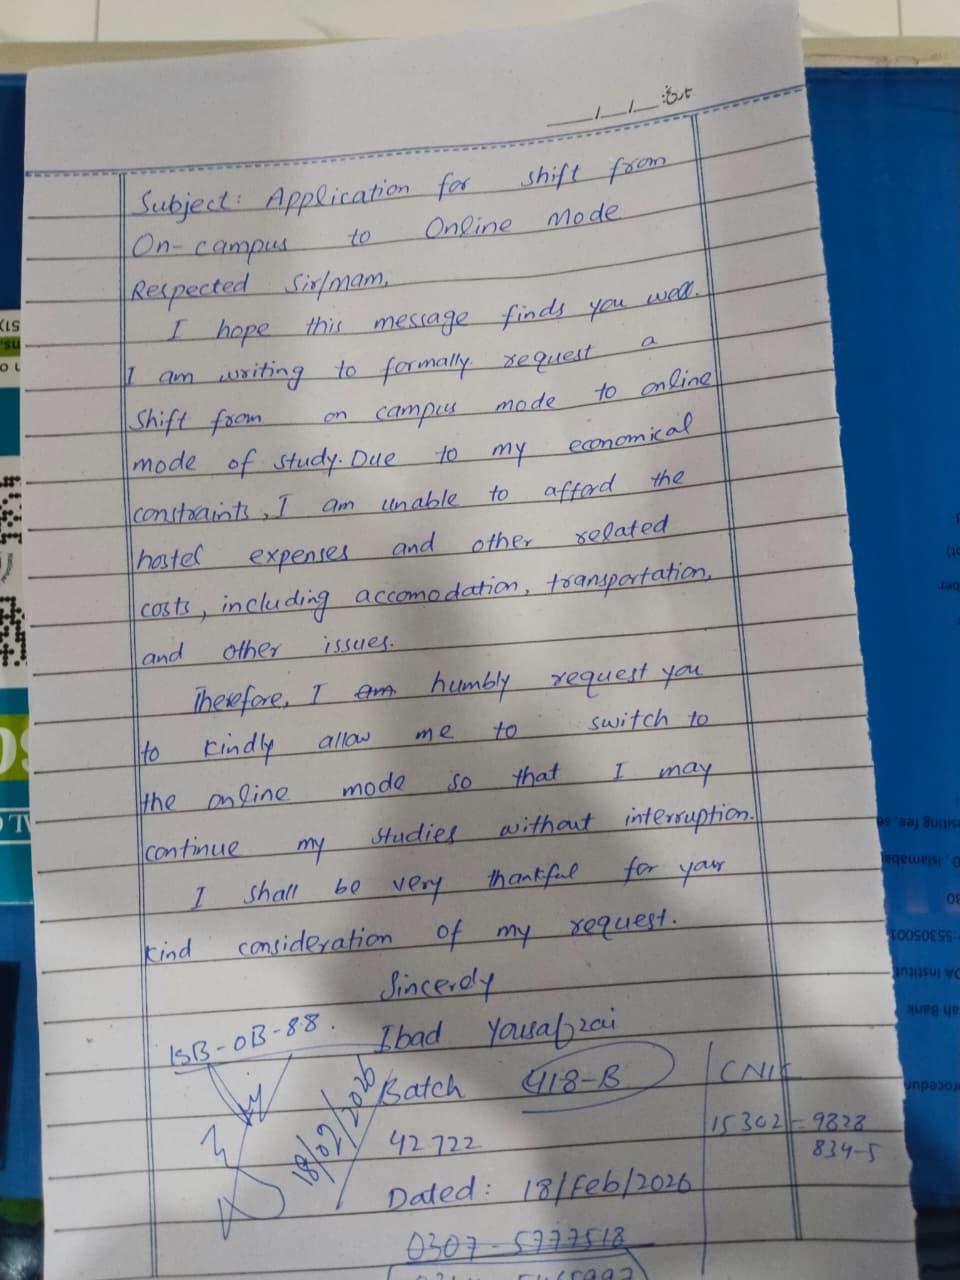 تاریخ: __/__/__
Subject: Application for shift from
On-campus to Online Mode
Respected Sir/mam,
I hope this message finds you well.
I am writing to formally request a
Shift from on campus mode to online
mode of study. Due to my economical
constraints, I am unable to afford the
hostel expenses and other related
costs, including accomodation, transportation,
and other issues.
Therefore, I am humbly request you
to kindly allow me to switch to
the online mode so that I may
continue my studies without interruption.
I shall be very thankful for your
kind consideration of my request.
Sincerely
Ibad Yousafzai
ISB-OB-88.
Batch 418-B
CNIC
15302-9828
834-5
42722
18/02/2026
Dated: 18/Feb/2026
0307-5777518